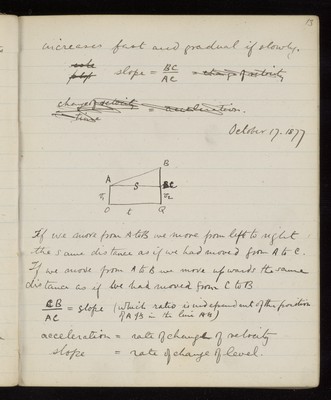 13
increases fast and gradual if slowly.
rate slope = BC/AC = change of velocity
change of velocity / time = acceleration.
October 17. 1877
B
A S C
v1 v2
O t Q
If we move from A to B we move from left to right
the same distance as if we had moved from A to C.
If we move from A to B we move upwards the same
distance as if we had moved from C to B
CB/AC = slope (which ratio is independent of the position
of A & B in the line AB)
acceleration = rate of change of velocity
slope = rate of change of level.